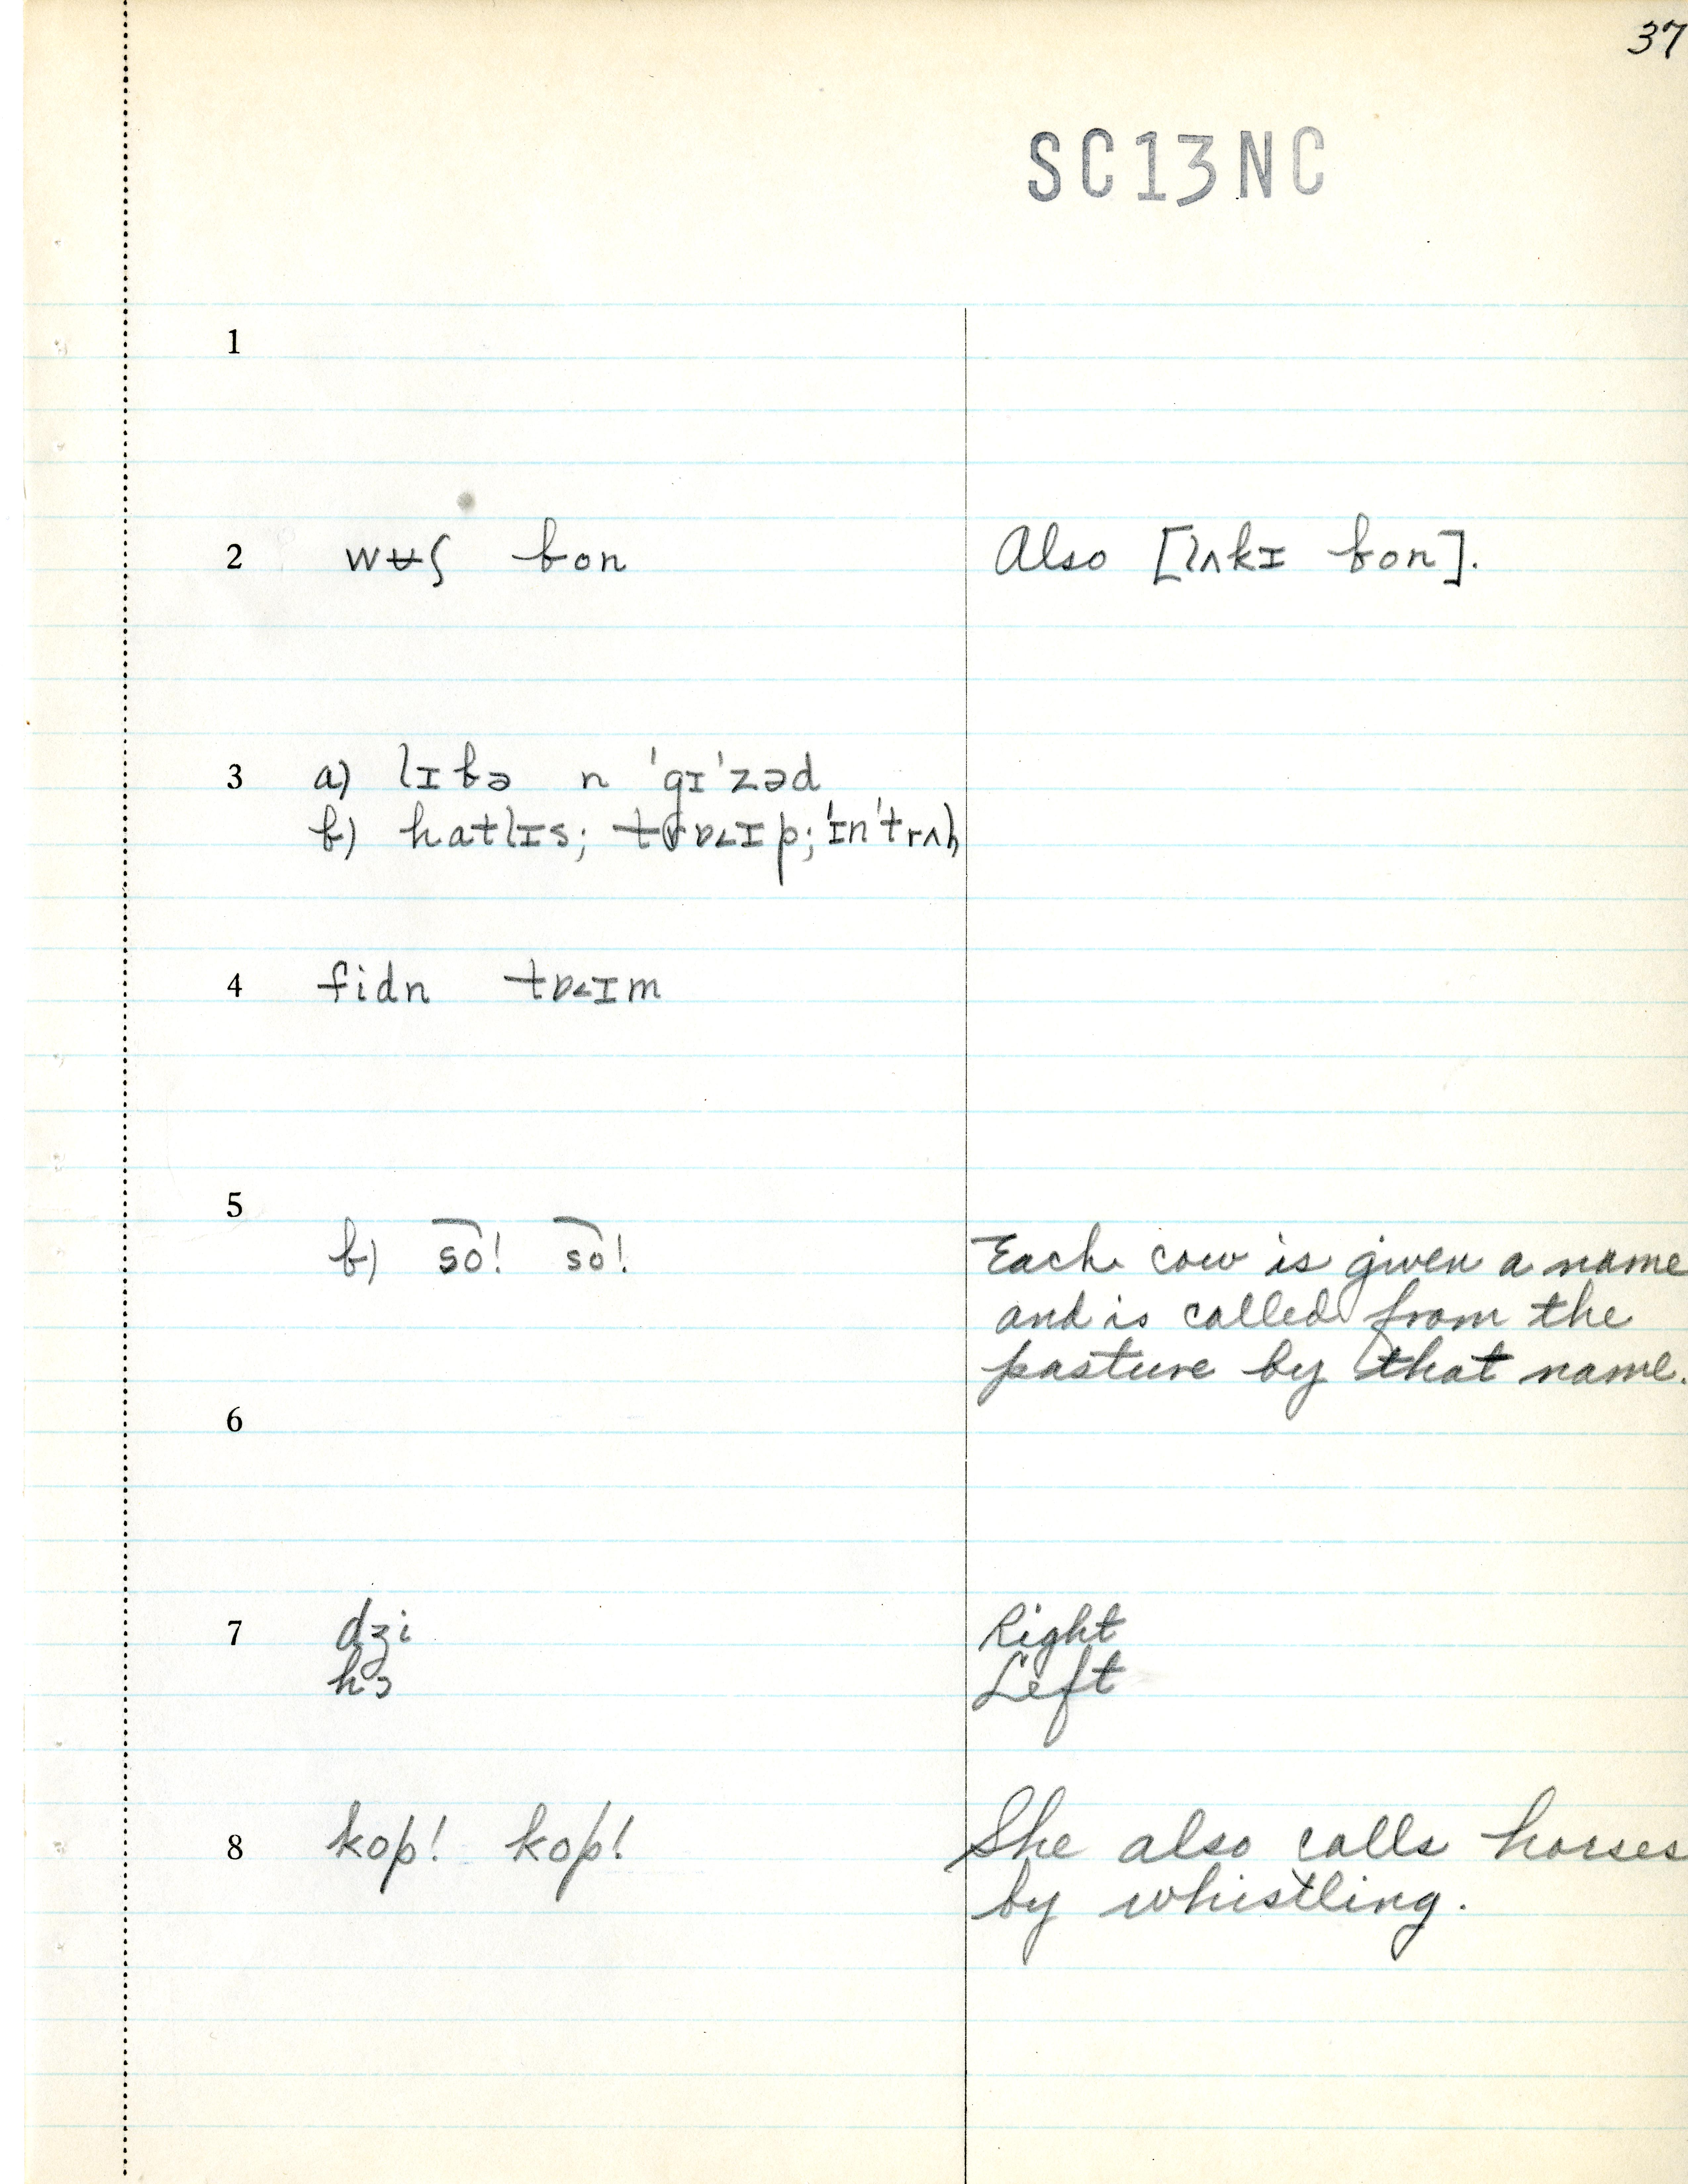 37
SC13NC
1
2 wʉʃ bon Also [lʌkɪ bon].
3 a) lɪbə n ˈgɪˈzəd
b) hatlɪs; trɒ˂ɪp; ˈɪnˈtrʌlz
4 fidn tɒ˂ɪm
5
b) so! so! Each cow is given a name
and is called from the
pasture by that name.
6
7 dʒi Right
hɔ Left
8 kop! kop! She also calls horses
by whistling.